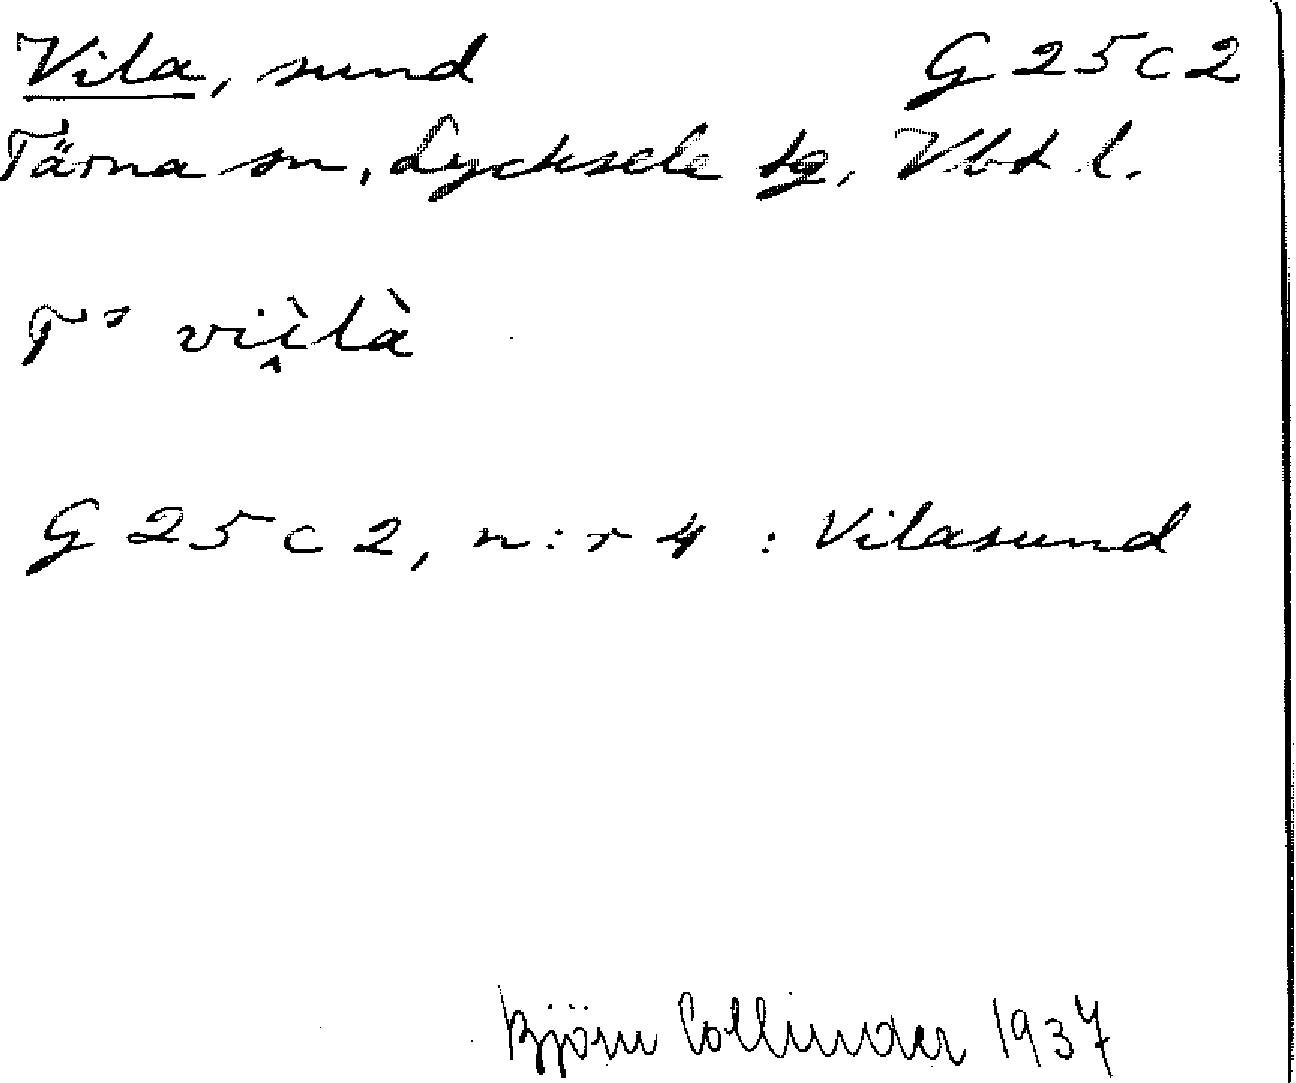 Vila, sund G 25 c 2
Tärna sn, Lycksele tg, Vbt l.
T³ viì̭là
G 25 c 2, n:r 4 : Vilasund
Björn Collinder 1937